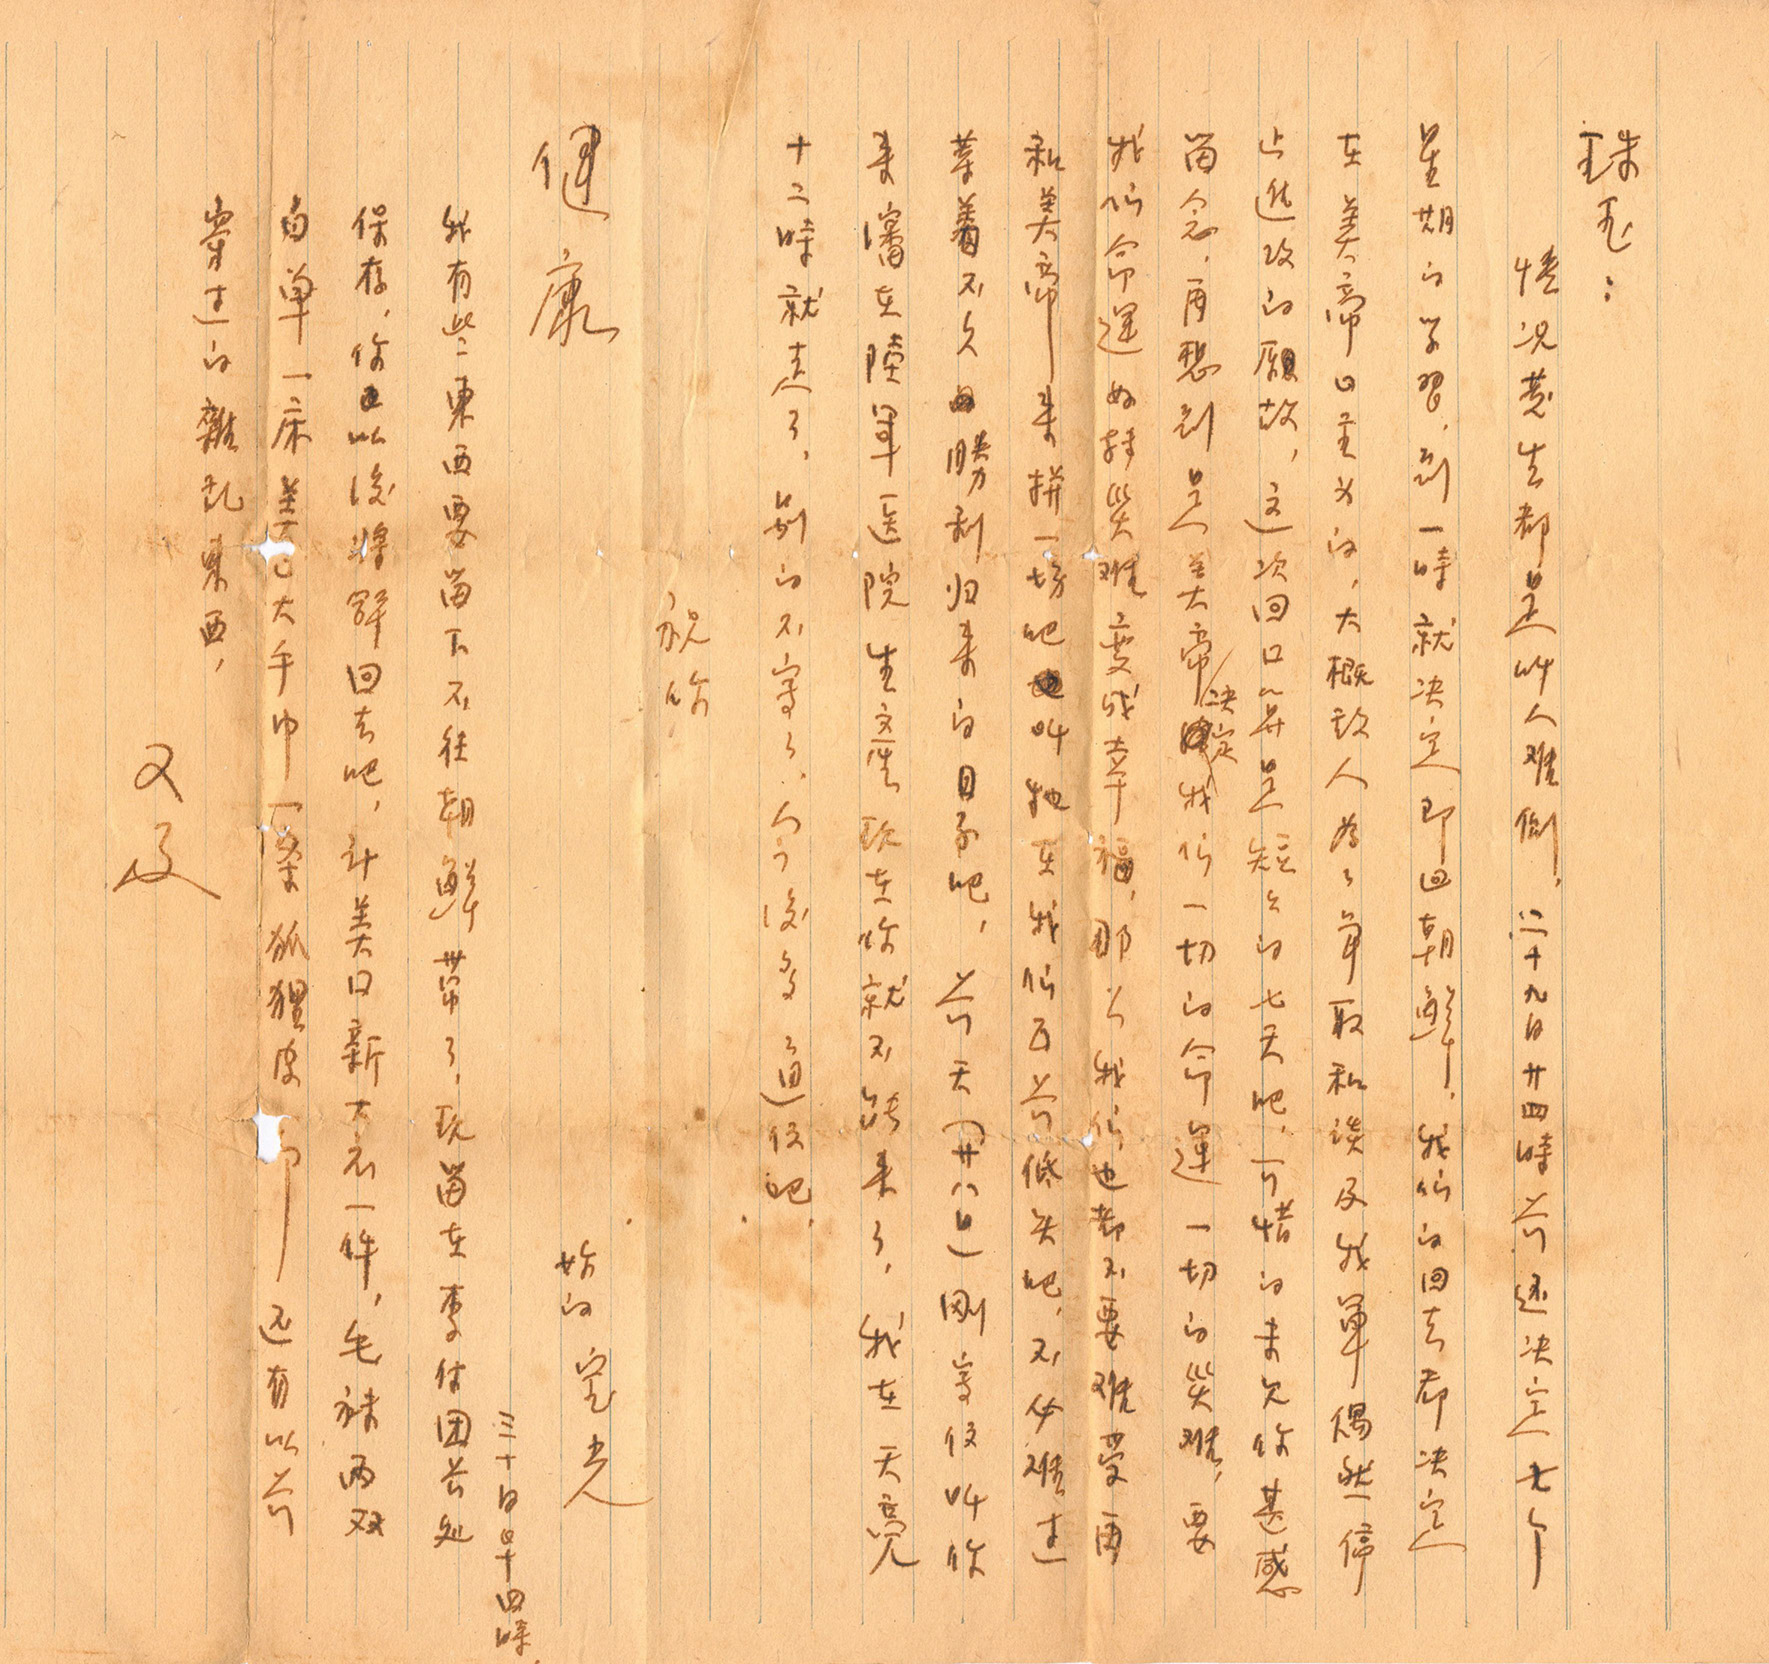 珠玉：
情况黄生都是叫人难倒，二十九日廿四時前还决定七个
星期的学習，到一時就决定即回朝鮮，我们的回去都决定
在美帝口主义的，大概敌人为了争取和談及我軍偶然一停
止進攻的原故，这次回口算是短短的七天吧，可惜的未見你甚感
留念，再想到是美帝决定我们一切的命運一切的災难，要
我们命運好轉災难变成幸福，那么我们也都不要难受再
和美帝来拼一場吧叫牠在我们面前低头吧，不必难过
等着不久的勝利归来的日子吧，前天（廿八日）刚寄信叫你
来瀋在陸軍医院生産现在你就不能来了，我在天亮
十二時就走了，别的不寫了，今後多多通信吧，
祝你
健康
妳的 宝光
三十日早四時，
我有些東西要留下不往朝鮮带了，现留在李付团长处
保存，你以後將解回去吧，計美口新大衣一件，毛袜两双
白单一床美口大手巾一条狐狸皮 还有以前
穿过的雜乱東西，
又及